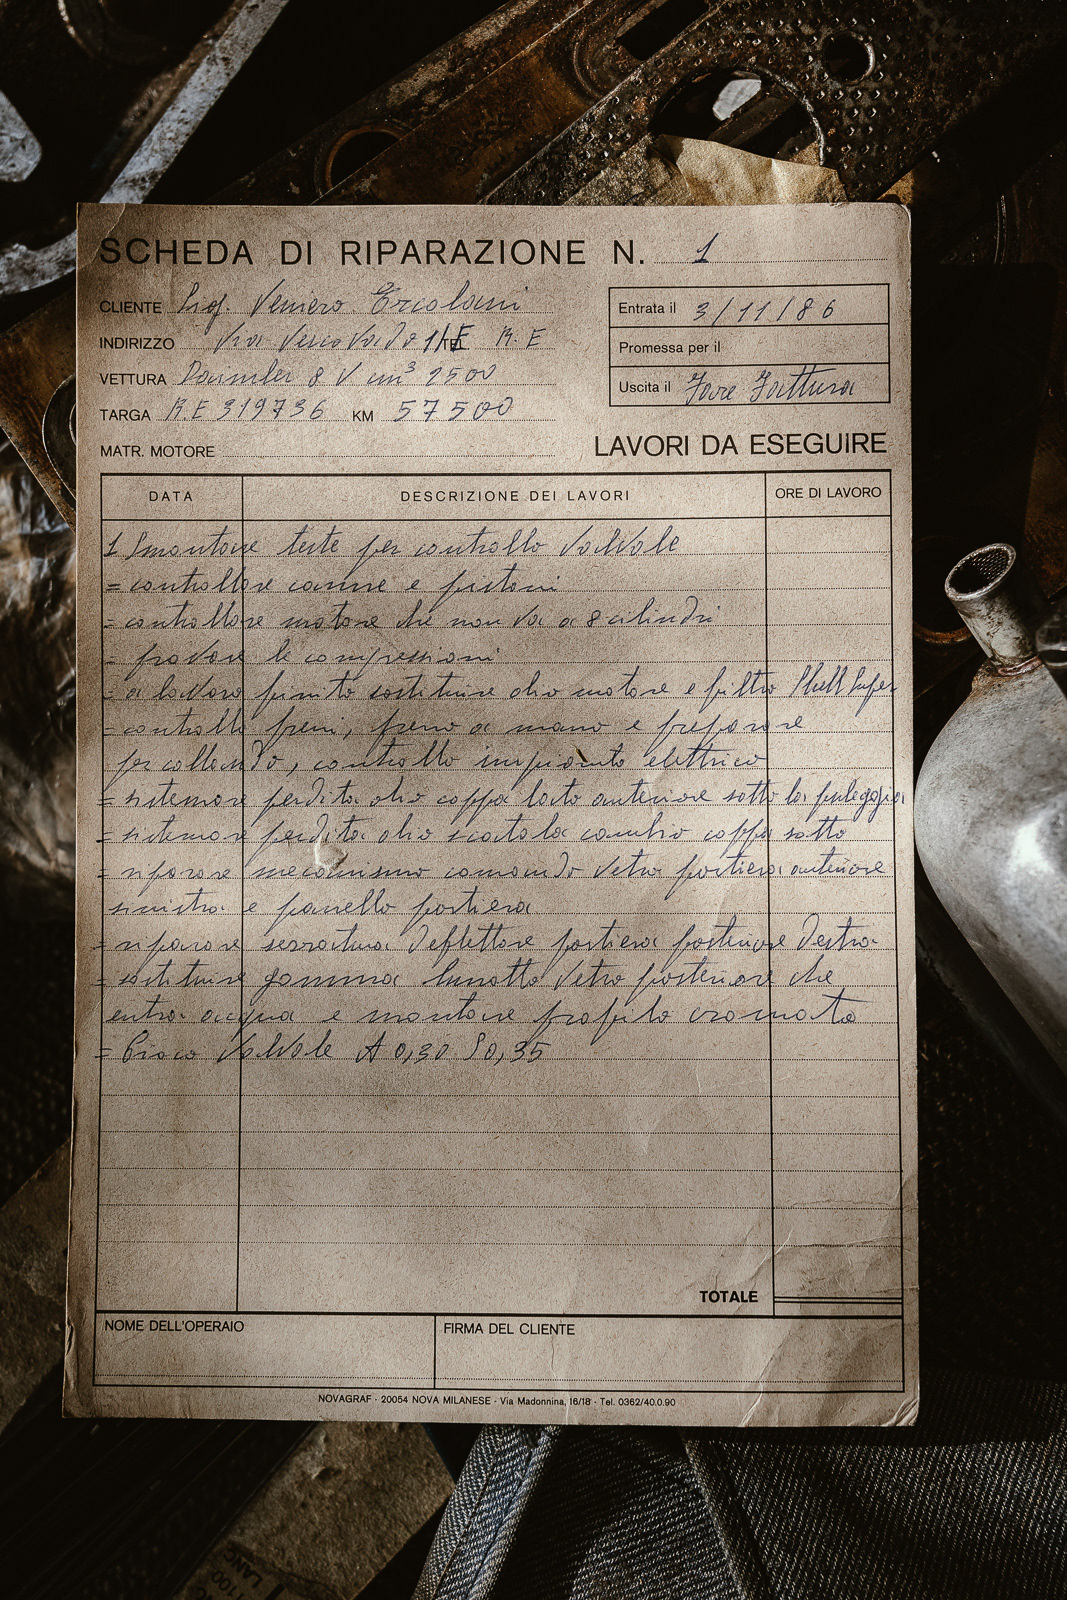 SCHEDA DI RIPARAZIONE N. 1
CLIENTE Sig. Veniero Ercolani
INDIRIZZO Via 1/E R.E
TEL
VETTURA Daimler 8 V cm³ 2500
TARGA R.E 319736 KM 57500
MATR. MOTORE
Entrata il 3/11/86
Promessa per il
Uscita il Fare Fattura
LAVORI DA ESEGUIRE
DATA DESCRIZIONE DEI LAVORI ORE DI LAVORO
1 Smontare teste per controllo valvole
= controllare canne e pistoni
= controllare motore che non va a 8 cilindri
= provare le compressioni
= a lavoro finito sostituire olio motore e filtro Shell Super
= controllo freni, freno a mano e preparare
per collaudo, controllo impianto elettrico
= sistemare perdita olio coppa lato anteriore sotto la puleggia
= sistemare perdita olio scatola cambio coppa sotto
= riparare meccanismo comando vetro portiera anteriore
sinistra e pannello portiera
= riparare serratura deflettore portiera posteriore destra
= sostituire gomma lunotto vetro posteriore che
entra acqua e montare profilo cromato
= Gioco Valvole A 0,30 S 0,35
TOTALE
NOME DELL'OPERAIO FIRMA DEL CLIENTE
NOVAGRAF - 20054 NOVA MILANESE - Via Madonnina, 16/18 - Tel. 0362/40.0.90